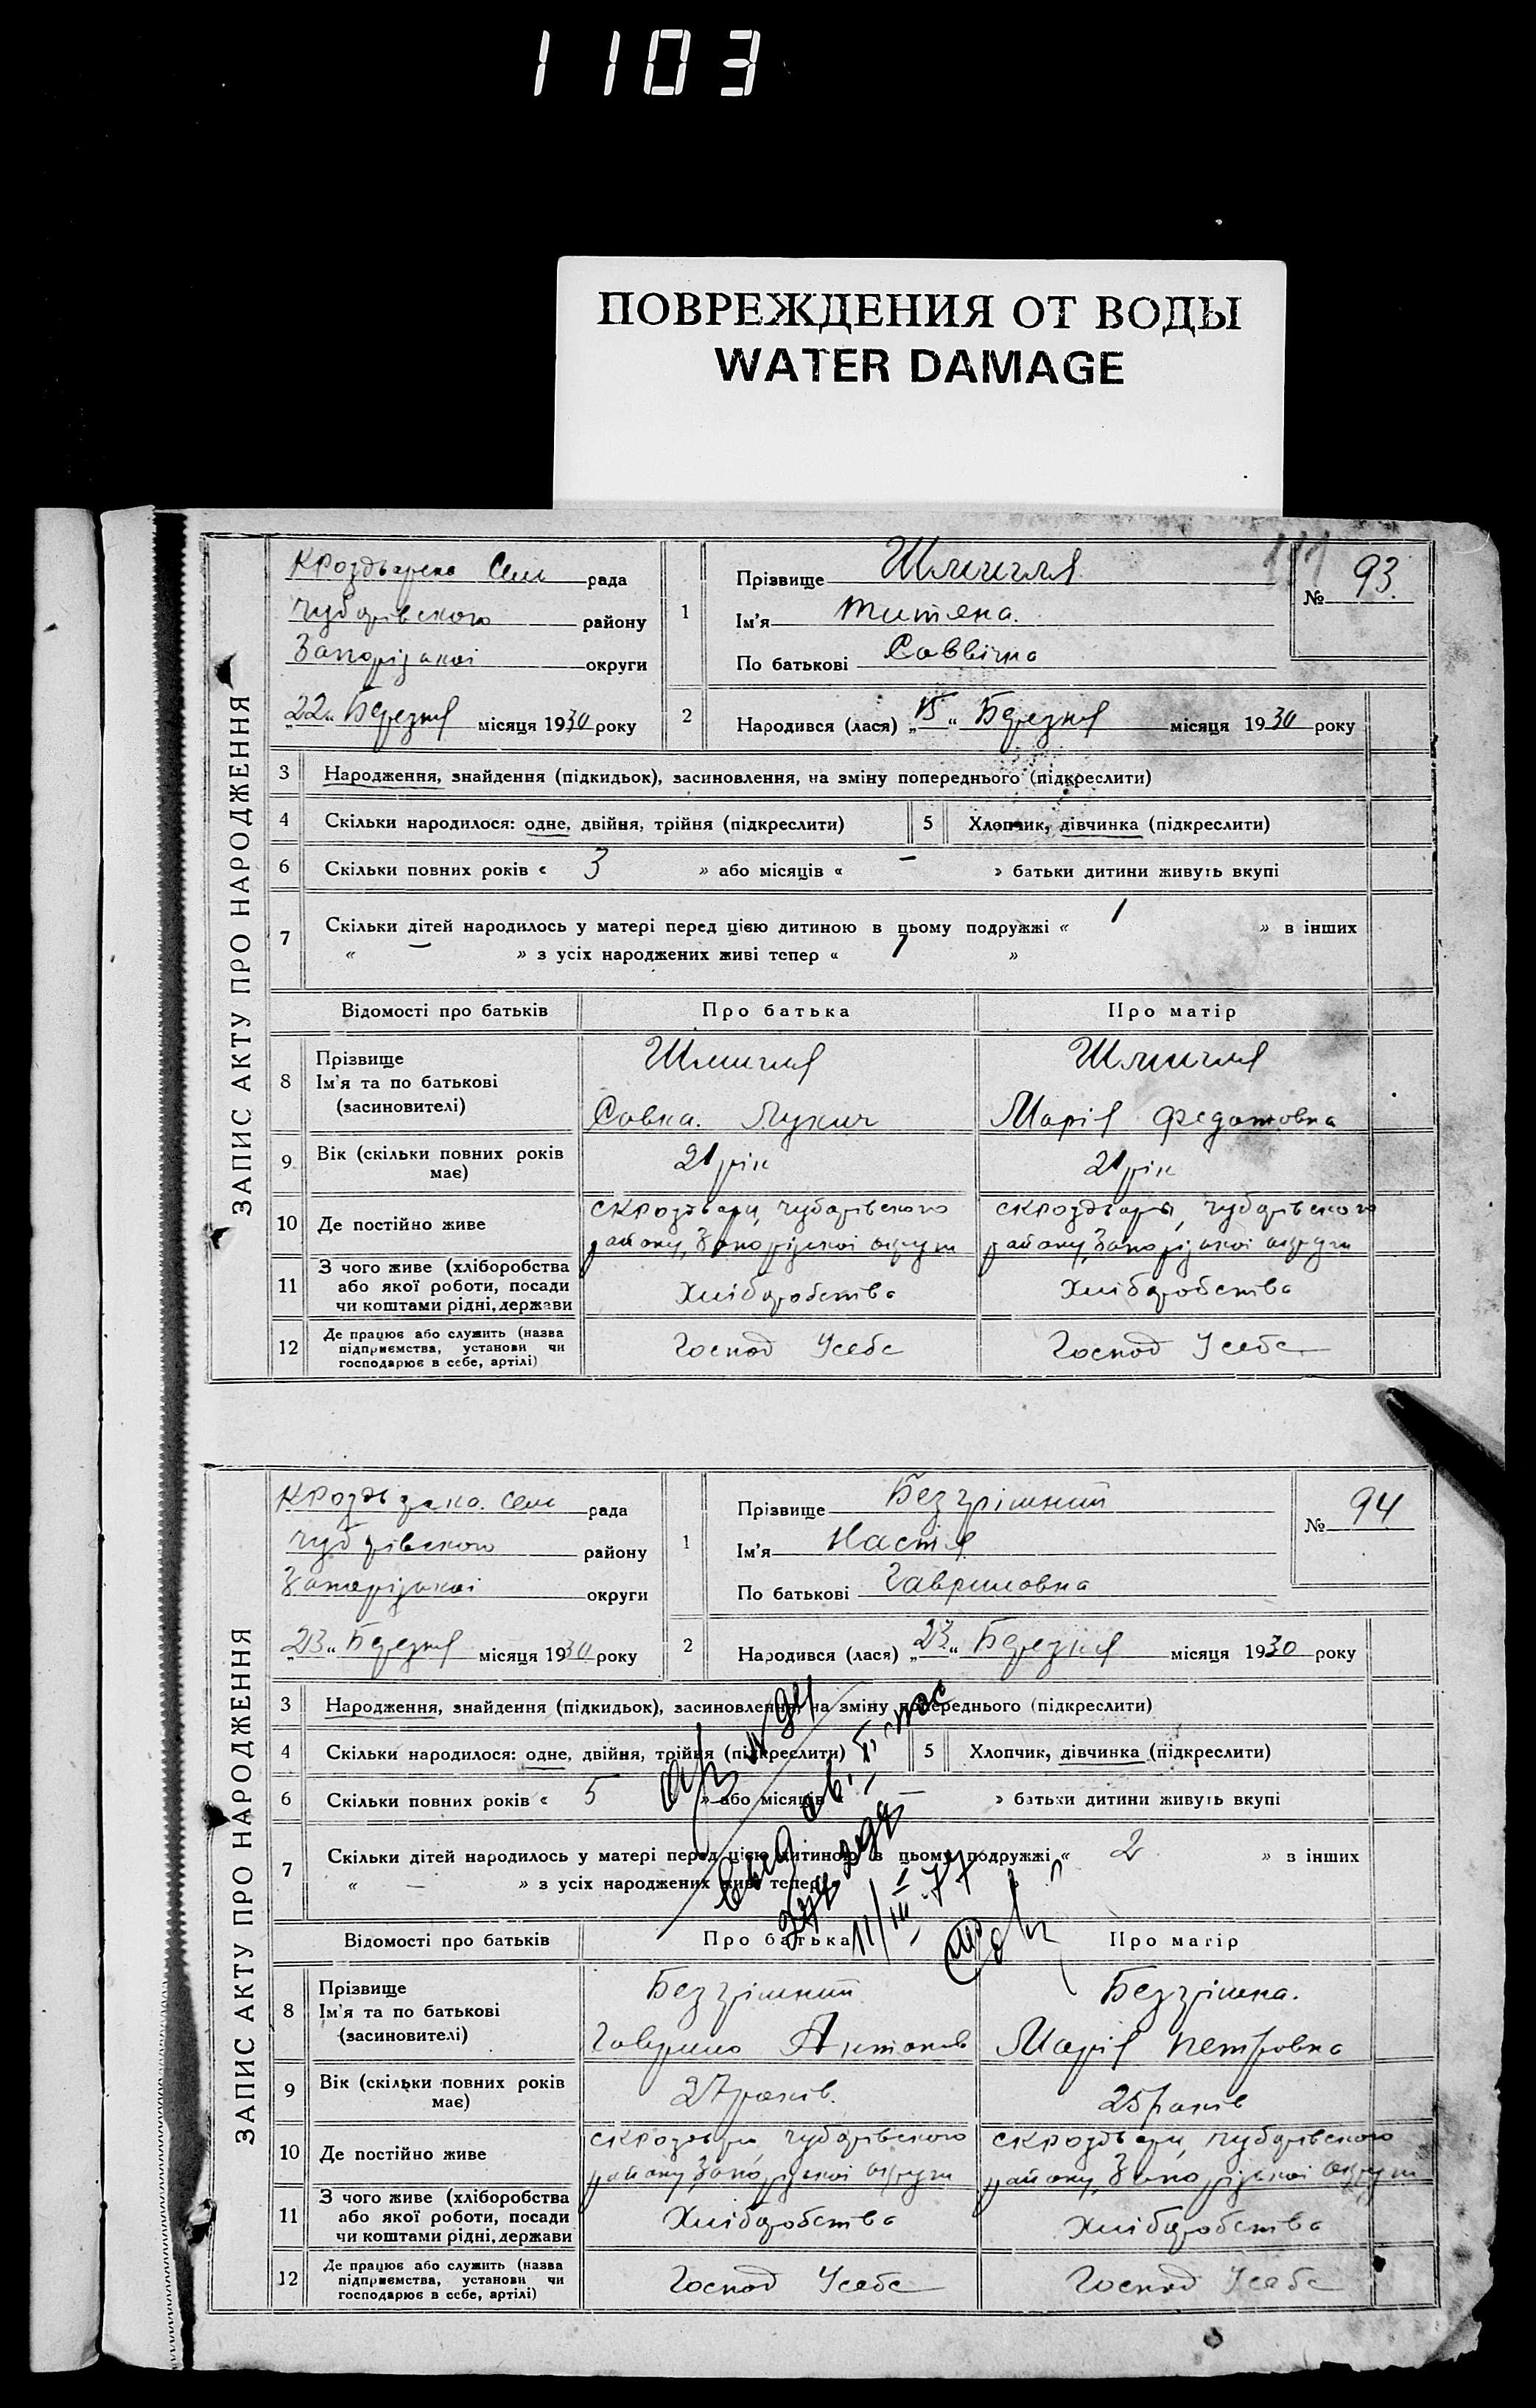 1103
ПОВРЕЖДЕНИЯ ОТ ВОДЫ
WATER DAMAGE
ЗАПИС АКТУ ПРО НАРОДЖЕННЯ
Сель рада
Чубарівського району
Запорізької округи
„22“ Березня місяця 1930 року
1
Прізвище
Ім'я Титяна.
По батькові Саввічна
№ 93.
2 Народився (лася) „15“ Березня місяця 1930 року
3 Народження, знайдення (підкидьок), засиновлення, на зміну попереднього (підкреслити)
4 Скільки народилося: одне, двійня, трійня (підкреслити) 5 Хлопчик, дівчинка (підкреслити)
6 Скільки повних років « 3 » або місяців « – » батьки дитини живуть вкупі
7 Скільки дітей народилось у матері перед цією дитиною в цьому подружжі « 1 » в інших
« – » з усіх народжених живі тепер « 1 »
Відомості про батьків Про батька Про матір
8 Прізвище
Ім'я та по батькові
(засиновителі)
Савка. Лукич Марія Федотовна
9 Вік (скільки повних років має) 21 рік 21 рік
10 Де постійно живе
Чубарівського Чубарівського
району, Запорізької округи району, Запорізької округи
11 З чого живе (хліборобства
або якої роботи, посади
чи коштами рідні, держави
Хліборобство Хліборобство
12 Де працює або служить (назва
підприємства, установи чи
господарює в себе, артілі)
Господ Усебе Господ Усебе
ЗАПИС АКТУ ПРО НАРОДЖЕННЯ
Сель рада
Чубарівського району
Запорізької округи
„23“ Березня місяця 1930 року
1
Прізвище Безгрішний
Ім'я Настя
По батькові Гавриловна
№ 94
2 Народився (лася) „23“ Березня місяця 1930 року
3 Народження, знайдення (підкидьок), засиновлення, на зміну попереднього (підкреслити)
4 Скільки народилося: одне, двійня, трійня (підкреслити) 5 Хлопчик, дівчинка (підкреслити)
6 Скільки повних років « 5 » або місяців « – » батьки дитини живуть вкупі
7 Скільки дітей народилось у матері перед цією дитиною в цьому подружжі « 2 » в інших
« – » з усіх народжених живі тепер
11/III-77
Відомості про батьків Про батька Про матір
8 Прізвище
Ім'я та по батькові
(засиновителі)
Безгрішний Безгрішна.
Гаврило Антонов Марія Петровна
9 Вік (скільки повних років має) 27 років. 25 років
10 Де постійно живе
Чубарівського Чубарівського
району, Запорізької округи району, Запорізької округи
11 З чого живе (хліборобства
або якої роботи, посади
чи коштами рідні, держави
Хліборобство Хліборобство
12 Де працює або служить (назва
підприємства, установи чи
господарює в себе, артілі)
Господ Усебе Господ Усебе